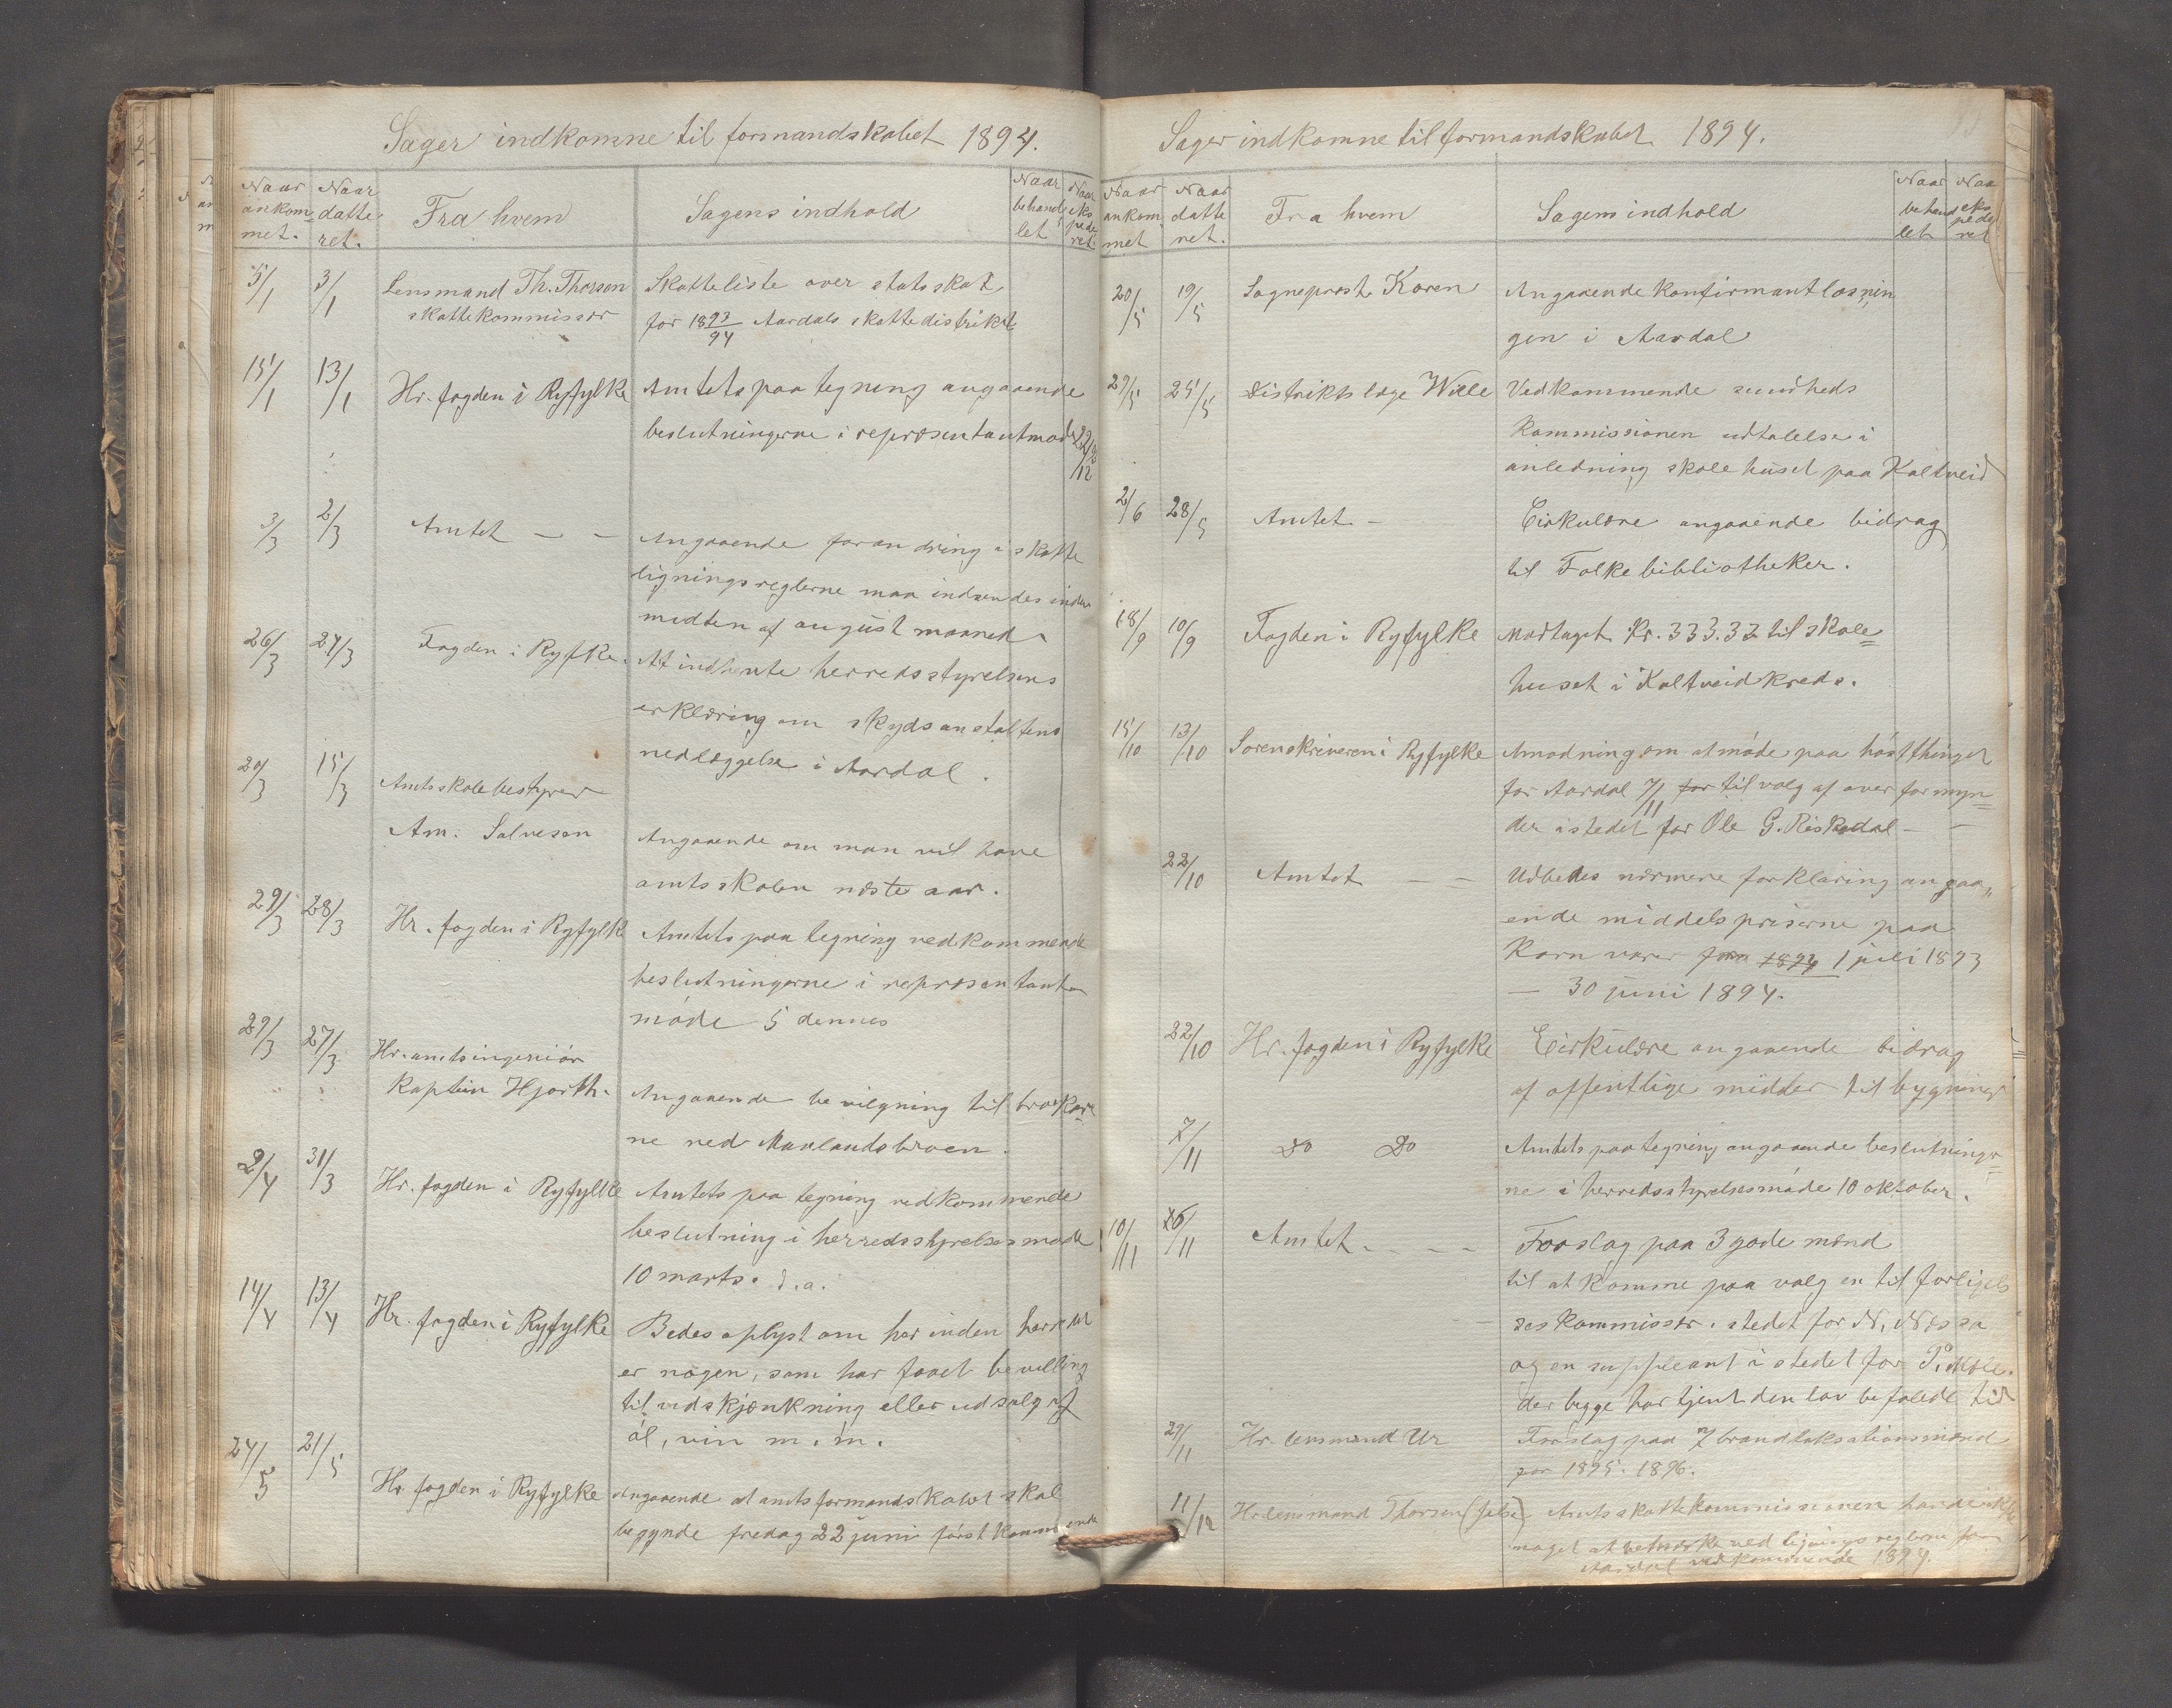 Sager indkomne til formandskabet 1894.
Naar ankommet.
Naar datteret.
Fra hvem
Sagens indhold
Naar behandlet
Naar ekspederet.
5/1 3/1 Lensmand Th. Thorsen Skatteliste over statsskat
skattekommissær for 1893/94 Aardals skattedistrikt
15/1 13/1 Hr. fogden i Ryfylke Amtets paategning angaaende
beslutningerne i repræsentantmøde 22/12
3/3 2/3 Amtet — — Angaaende forandring i skatte
ligningsreglerne maa indsendes inden
midten af august maaned.
26/3 24/3 Fogden i Ryfke. At indhente herredsstyrelsens
erklæring om skydsanstaltens
nedlæggelse i Aardal.
20/3 15/3 Amtsskolebestyrer
Am. Salvesen Angaaende om man vil have
amtsskolen næste aar.
29/3 28/3 Hr. fogden i Ryfylk Amtets paategning vedkommende
beslutningerne i repræsentant
møde 5 dennes
29/3 27/3 Hr. amtsingeniør
kaptein Hjorth. Angaaende bevilgning til brokar=
ne ved Maalandsbroen.
2/4 31/3 Hr. fogden i Ryfylke Amtets paategning vedkommende
beslutning i herredsstyrelsesmøde
10 marts. d.a.
14/4 13/4 Hr. fogden i Ryfylke Bedes oplyst om her inden herredet
er nogen, som har faaet bevilling
til udskjænkning eller udsalg af
øl, vin m.m.
24/5 21/5 Hr fogden i Ryfylke Angaaende at amtsformandskabet skal
begynde fredag 22 juni førstkommende
Sager indkomne til formandskabet 1894.
Naar ankommet
Naar datteret.
Fra hvem
Sagens indhold
Naar behandlet
Naar ekspederet
20/5 19/5 Sogneprest Koren Angaaende konfirmantlæsnin
gen i Aardal
29/5 25/5 Distriktslæge Wille Vedkommende sundheds
kommissionen udtalelse i
anledning skolehuset paa Kaltveid
2/6 28/5 Amtet — Cirkulære angaaende bidrag
til Folkebibliotheker.
18/9 10/9 Fogden i Ryfylke Modtaget Kr. 333.33 til skole=
huset i Kaltveidkreds.
15/10 13/10 Sorenskriveren i Ryfylke Amodning om at møde paa høstthinget
for Aardal 7/11 for til valg af overformyn=
der istedet for Ole G. Riskedal —
22/10 Amtet — — Udbedes nærmere forklaring angaa„
ende middelspriserne paa
Kornvarer fra 1894 1 juli 1893
— 30 juni 1894.
22/10 Hr. fogden i Ryfylke Cirkulære angaaende bidrag
af offentlige midder til bygning
7/11 Do Do Amtets paategning angaaende beslutninger=
ne i herredsstyrelsesmøde 10 oktober.
10/11 6/11 Amtet. — — — Forslag paa 3 gode mænd
til at komme paa valg en til forligel
seskommissær. stedet for N. Næssa
og en suppleant i stedet for P. Mæle.
der begge har tjent den lov befalede tid
29/11 Hr. lensmand Ur Forslag paa 7 brandtaksationsmænd
for 1895. 1896.
11/12 Hr lensmand Thorsen Amtsskattekommissionen havde ikke
noget at bemærke ved lignings reglerne for
Aardal vedkommende 1894.